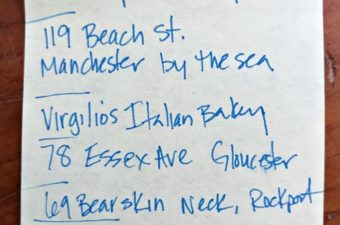 119 Beach St.
Manchester by the sea
Virgilios Italian Bakery
78 Essex Ave Gloucester
69 Bearskin Neck, Rockport